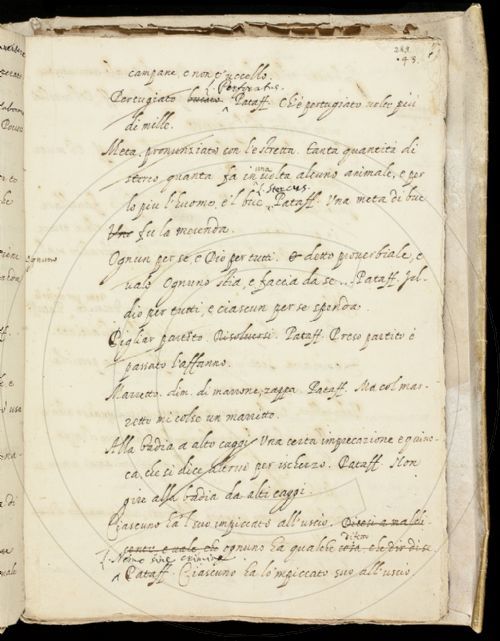 243
43.
campane, e non è uccello.
L. Perforatus.
Pertugiato bucato Pataff. Ch'è pertugiato volte più
di mille.
Meta, pronunziato con l'e stretta. tanta quantità di
sterco, quanta fa in una volta alcuno animale, e per
lo più l'huomo, e 'l bue L. stercus. Pataff. Una meta di bue
fu la merenda.
ognuno
Ognun per se, e Dio per tutti. è detto proverbiale, e
vale ognuno stia, e faccia da se. Pataff.
dio per tutti, e ciascun per se spenda.
Pigliar partito. Risolversi. Pataff. Preso partito è
passato l'affanno.
Marretto. dim. di marrone, zappa. Pataff. Ma col mar-
retto mi colse un marretto.
Alla badia a alto caggi. Una certa imprecazione equivo-
ca, che si dice altrui per ischerzo. Pataff. Non
gire alla badia da alti caggi.
Ciascuno ha 'l suo impiccato all'uscio. Dicesi a
e vale che ognuno ha qualche cosa, che dir di se
difetto
L. Nemo sine crimine.
Pataff. Ciascuno ha lo 'mpiccato suo all'uscio